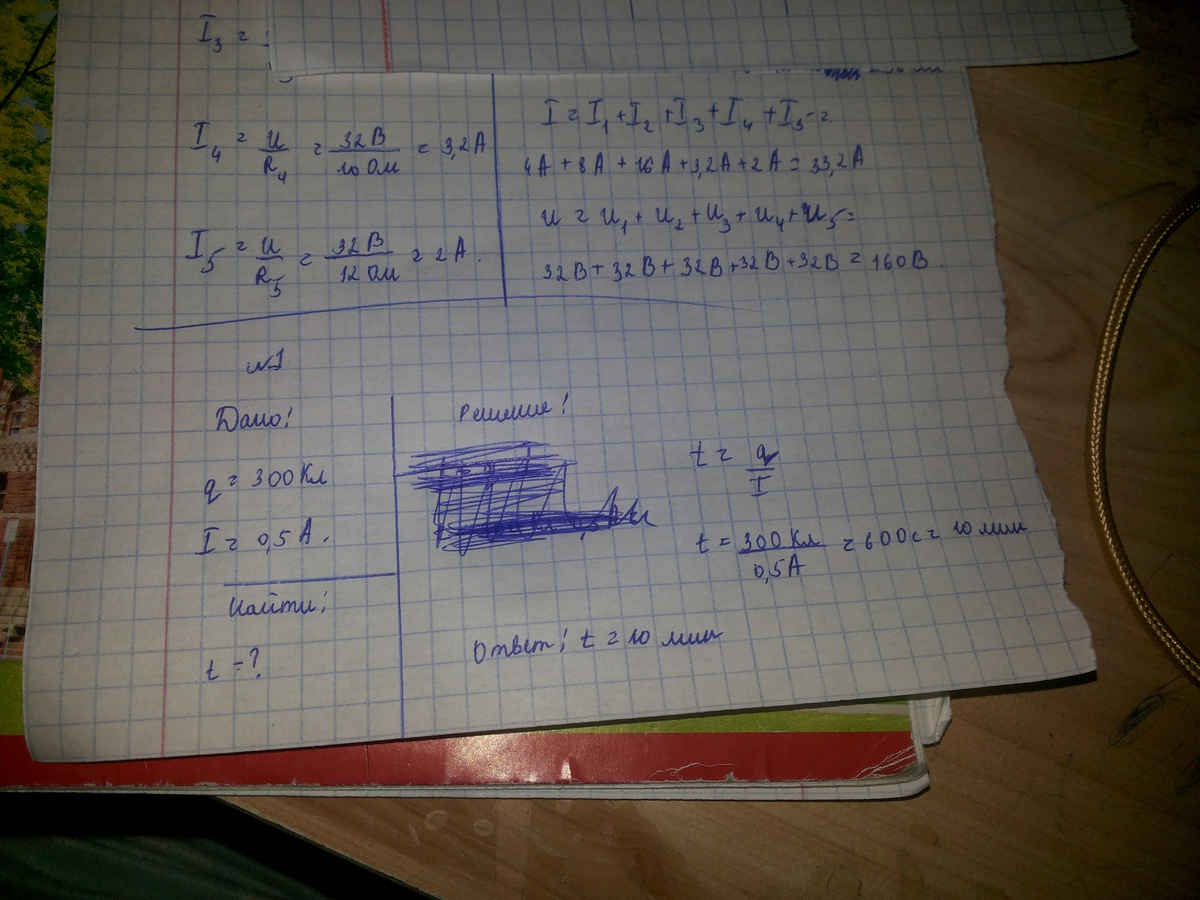 I₃ =
I₄ = U/R₄ = 32В/10 Ом = 3,2А
I₅ = U/R₅ = 32В/12 Ом = 2А.
I = I₁ + I₂ + I₃ + I₄ + I₅ =
4А + 8А + 16А + 3,2А + 2А = 33,2А
U = U₁ + U₂ + U₃ + U₄ + U₅ =
32В + 32В + 32В + 32В + 32В = 160В.
№1
Дано:
q = 300 Кл
I = 0,5 А.
Найти:
t = ?
Решение:
t = q/I
t = 300 Кл/0,5 А = 600с = 10 мин
Ответ: t = 10 мин